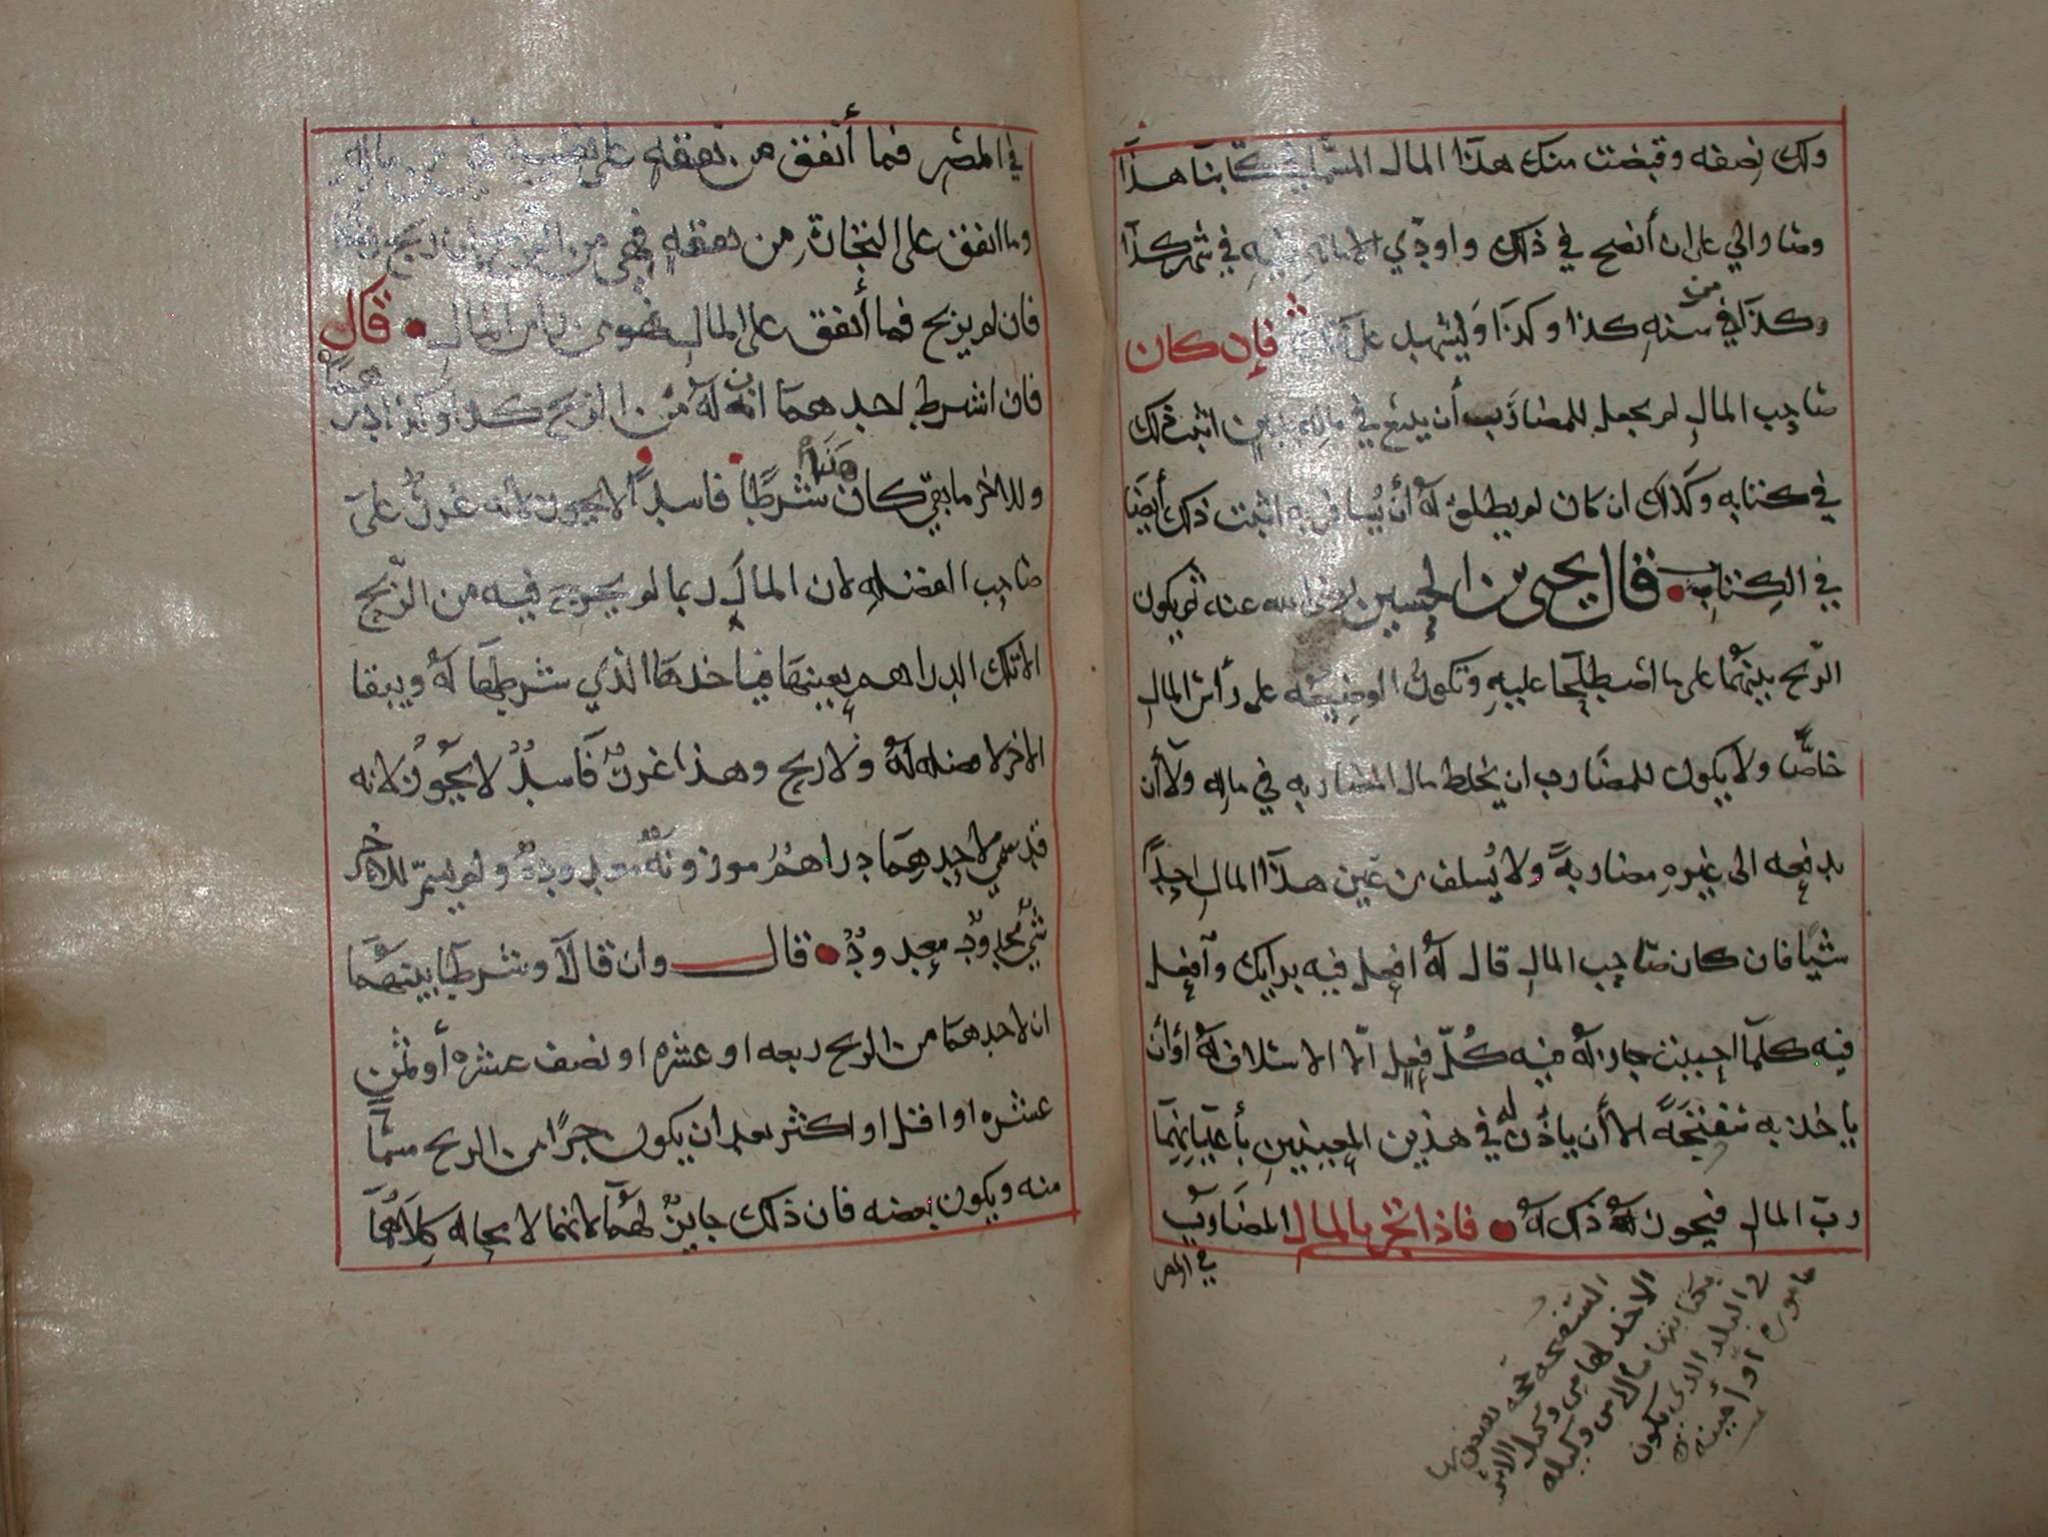 ولك نصفه وقبضت منك هذا المال المسما في كتابنا هذا
وصار الي على ان أنصح في ذلك واودي الامانه فيه في شهر كذا
وكذا في سنه كذا وكذا وليشهد على فان كان
صاحب المال لم يجعل للمضارب أن يدفع في اثبت ذلك
في كتابه وكذلك ان كان لم يطلق له أن يسافر به اثبت ذلك أيضا
في الكتاب قال يحيى بن الحسين رضي الله عنه ثم يكون
الربح بينهما على ما اصطلحا عليه وتكون الوضيعه على رأس المال
خاصا ولا يكون للمضارب ان يخلط مال المضاربه في ماله ولا أن
يدفعه الى غيره مضاربة ولا يسلف من عين هذا المال احدا
شيا فان كان صاحب المال قال له افعل فيه برايك وافعل
فيه كلما احببت جاز له فيه كل فعل الا الاسلاف له أو أن
ياخذ به سفتجة الا أن ياذن له في هذين المعنيين بأعيانهما
رب المال فيجوز له ذلك له فاذا اتجر بالمال المضارب
في المصر
السفتجه
الاخذ لها من وكيل
بمكتابتها مالا من وكيله
في البلد الذي يكون
او أمينه
في المصر فما أنفق من نفقه على نفسه من ماله
وما انفق على التجارة من نفقه فهي من الربح ان ربح
فان لم يربح فما أنفق على المال فهو من راس المال قال
فان اشرط احدهما انه له من الربح كذا وكذا درهما
وللاخر ما بقي كان هذا شرطا فاسدا لا يجوز لانه غرر على
صاحب الفضله لان المال ربما لم يخرج فيه من الربح
الا تلك الدراهم بعينها فياخذها الذي شرطها له ويبقا
الاخر لا فضله له ولا ربح وهذا غرر فاسد لا يجوز لانه
قد سمي لاحدهما دراهم موزونة معدودة ولم يسم للاخر
شي محدود معدود قال وان قالا وشرطا بينهما
ان لاحدهما من الربح ربعه او عشره او نصف عشره أو ثمن
عشره او اقل او اكثر بعد ان يكون جزا من الربح مسما
منه ويكون بعضه فان ذلك جايز لهما لانهما لا محاله كلاهما